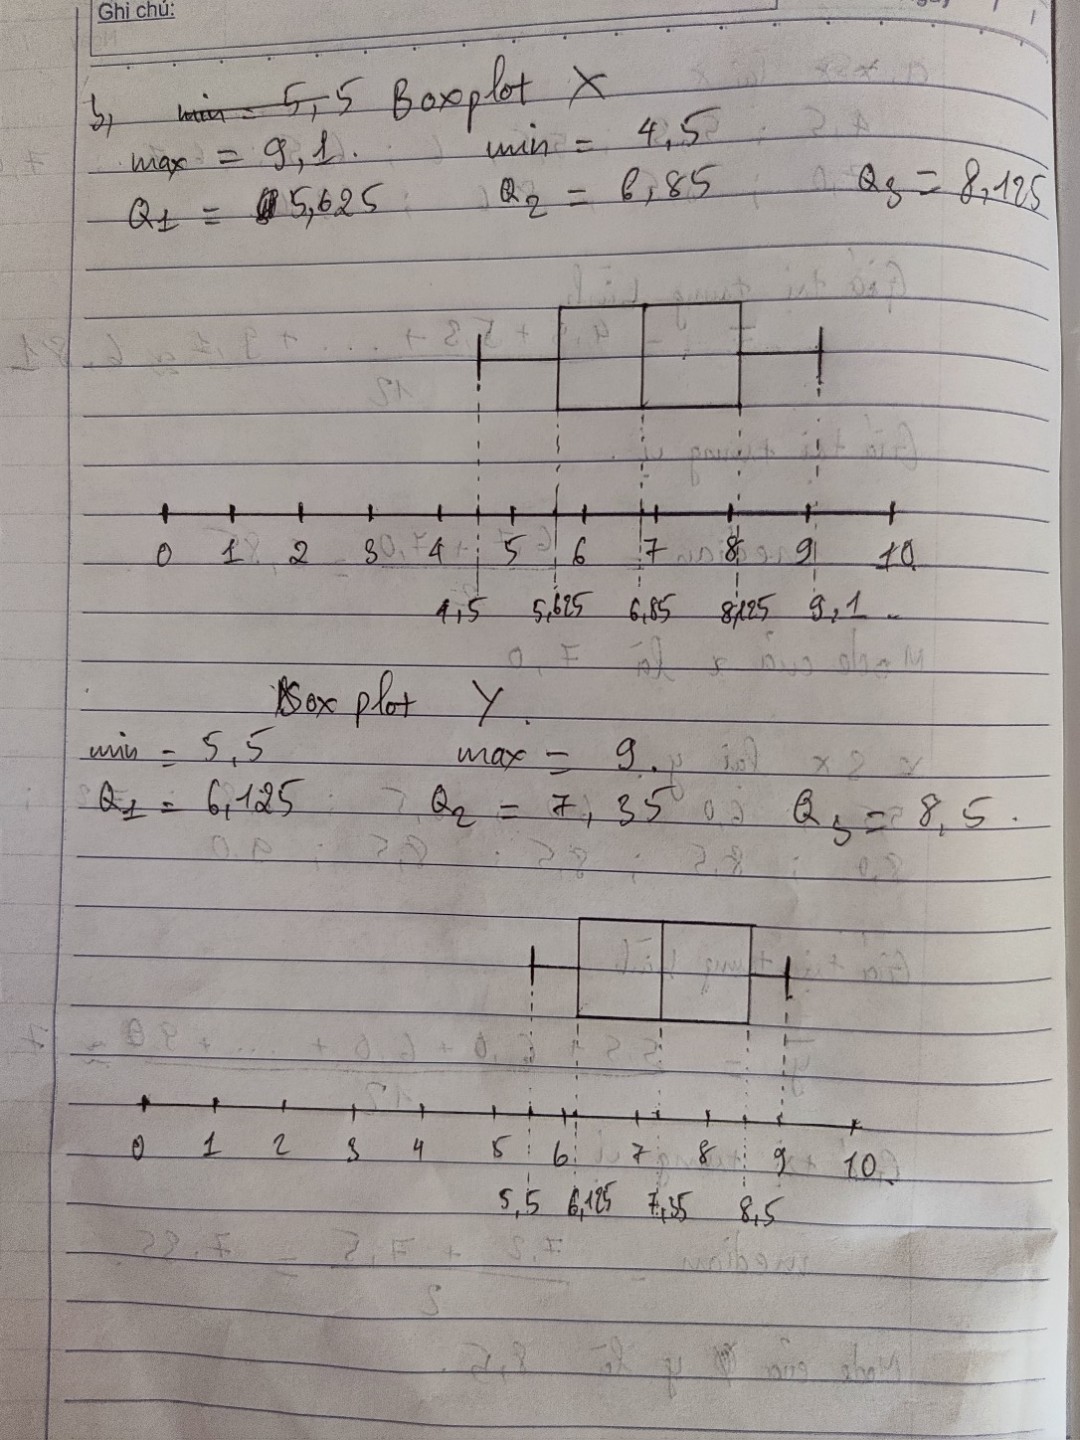 Ghi chú:
b, min = 5,5 Boxplot X
max = 9,1. min = 4,5
Q1 = 5,625 Q2 = 6,85 Q3 = 8,125
0 1 2 3 4 5 6 7 8 9 10
4,5 5,625 6,85 8,125 9,1
Box plot Y.
min = 5,5 max = 9.
Q1 = 6,125 Q2 = 7,35 Q3 = 8,5.
0 1 2 3 4 5 6 7 8 9 10
5,5 6,125 7,35 8,5